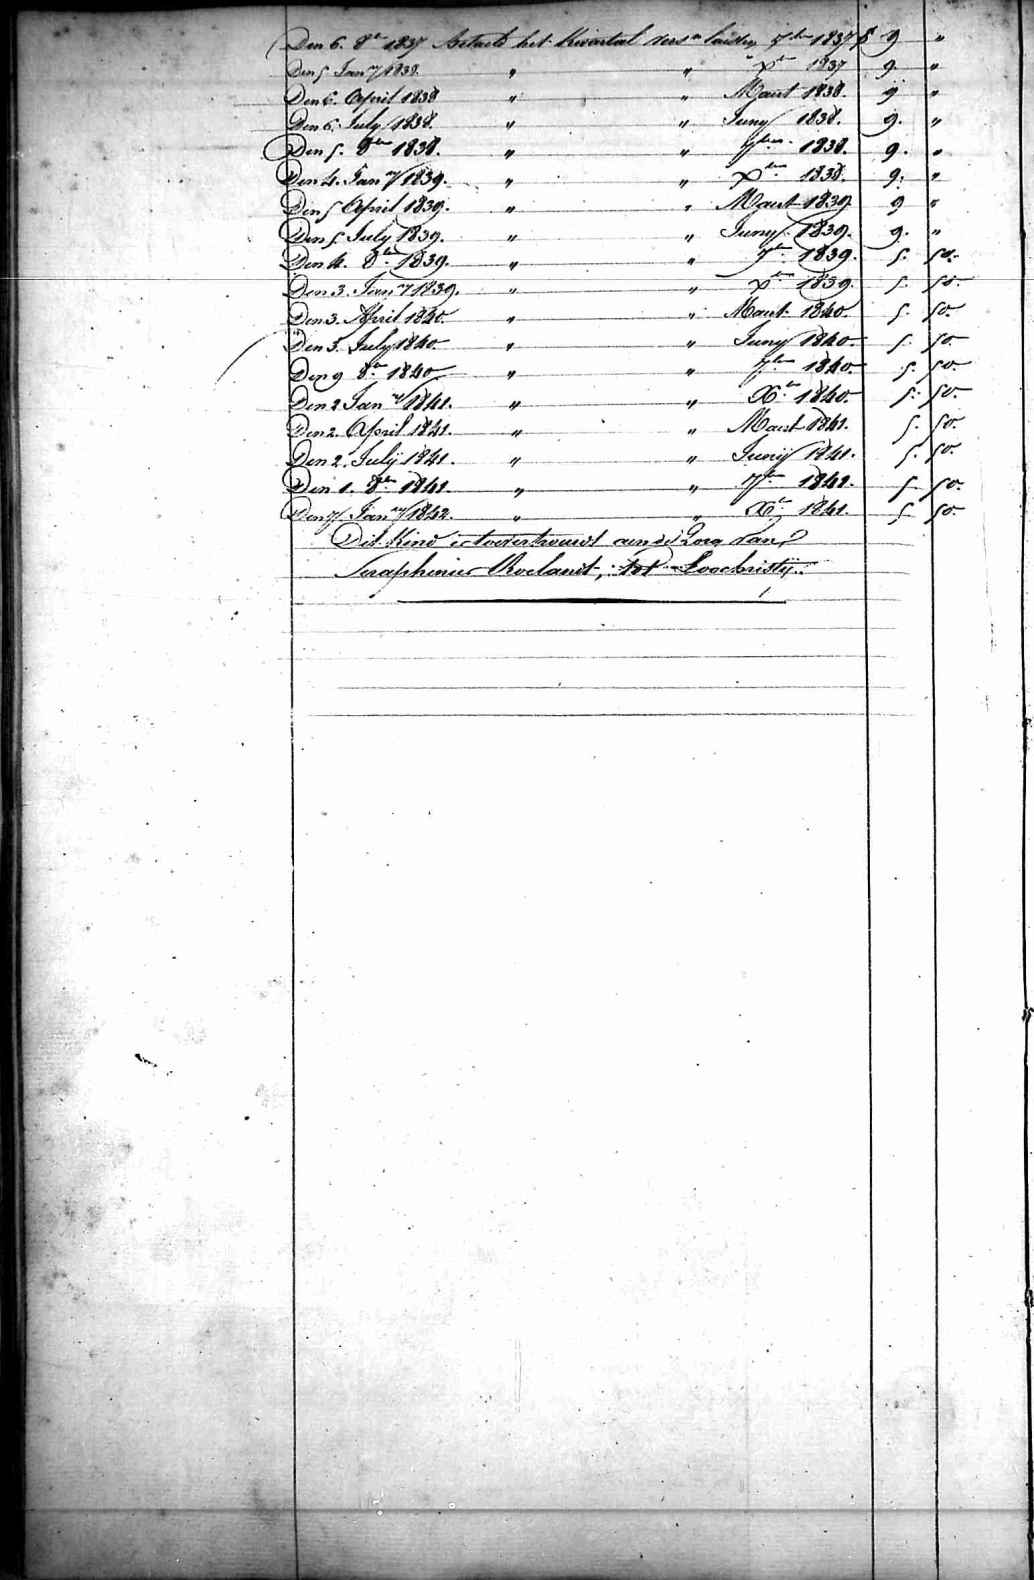 Den 6. 8re 1837 betaelt het Kwartael vers. laisten 7ber 1837 f 9 "
Den 5 Jany 1838. " " Xber 1837 9. "
Den 6. April 1838 " " Maart 1838. 9 "
Den 6. July 1838. " " Juny 1838. 9. "
Den 5. 8ber 1838. " " 7ber 1838. 9. "
Den 4. Jany 1839. " " Xber 1838. 9. "
Den 5 April 1839. " " Maart 1839 9 "
Den 5. July 1839. " " Juny 1839. 9. "
Den 4. 8ber 1839. " " 7ber 1839. 5. 50.
Den 3. Jany 1839. " " Xber 1839. 5. 50.
Den 3. April 1840. " " Maart 1840 5. 50.
Den 3. July 1840. " " Juny 1840 5. 50
Den 9 8re 1840 " " 7ber 1840 5. 50.
Den 2 Jany 1841. " " Xbr 1840. 5. 50.
Den 2. April 1841. " " Maart 1841. 5. 50.
Den 2. July 1841. " " Juny 1841. 5. 50.
Den 1. 8bre 1841. " " 7bre 1841. 5. 50.
Den 7. Jany 1842. " " Xbr 1841. 5 50.
Dit Kind is toevertrouwt aen de Zorg van
Seraphinus Roelandt, tot Loochristy.